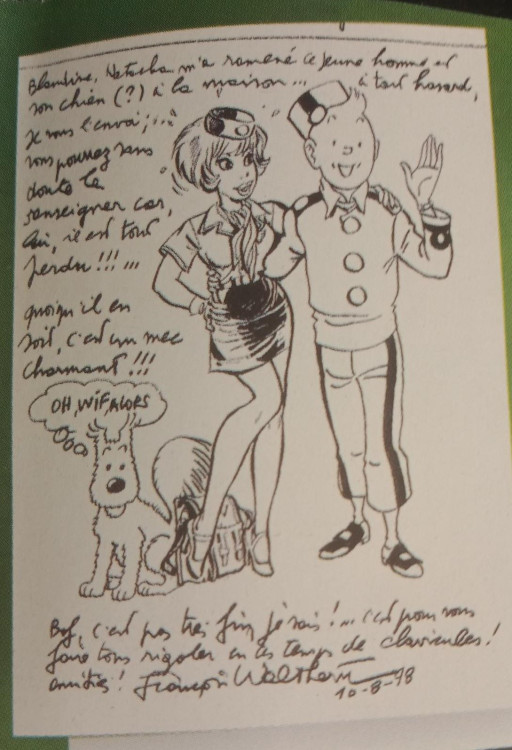 Blandine, Natacha m'a ramené ce jeune homme et
son chien (?) à la maison... à tout hasard,
je vous l'envoi;...
vous pourrez sans
doute le
renseigner car,
lui, il est tout
perdu !!! ...
quoiqu'il en
soit, c'est un mec
charmant !!!
OH, WIF ALORS
Bof, c'est pas très fin je sais !... c'est pour vous
faire tous rigoler en ces temps de clavicules !
amitiés ! François Walthéry
10-8-98